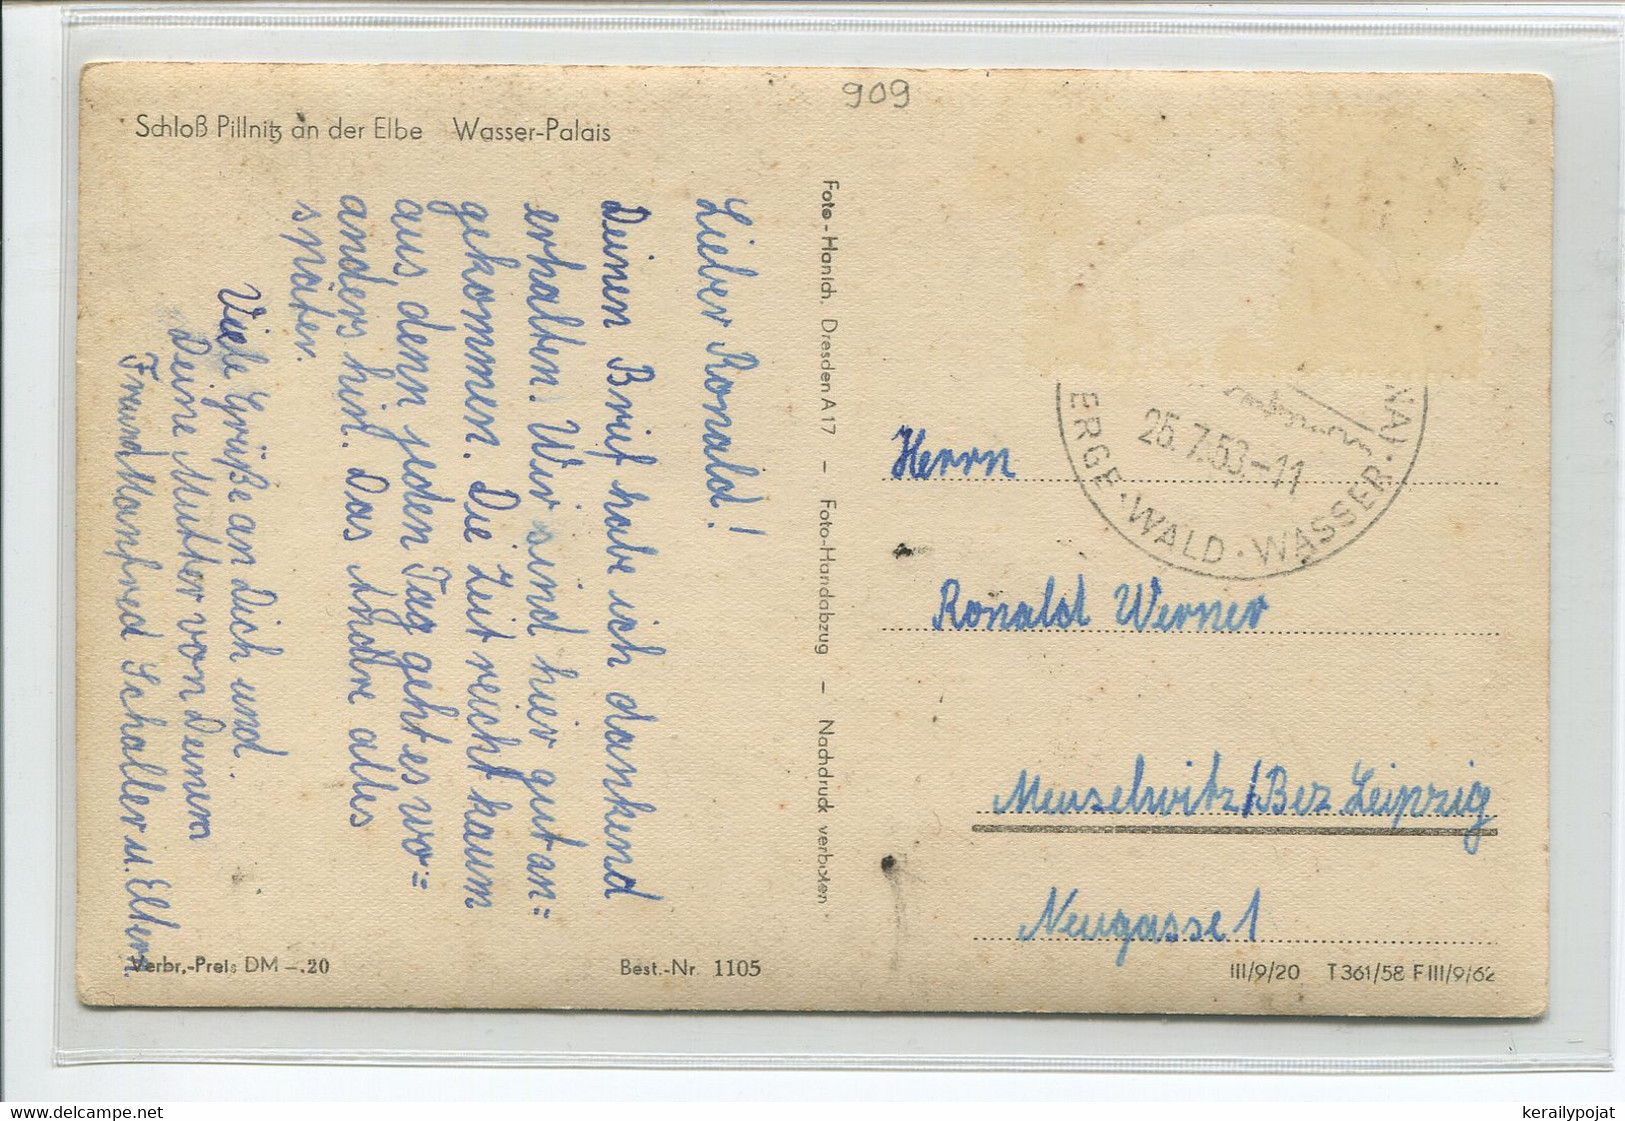 909
Schloß Pillnitz an der Elbe Wasser-Palais
Lieber Ronald!
Deinen Brief habe ich dankend
erhalten. Wir sind hier gut an=
gekommen. Die Zeit reicht kaum
aus, denn jeden Tag geht es wo=
anders hin. Das Andere alles
später.
Viele Grüße an Dich und
Deine Mutter von Deinem
Freund Manfred Schaller u. Eltern.
Verbr.-Preis DM –.20
Best.-Nr. 1105
Foto-Hanich, Dresden A 17 – Foto-Handabzug – Nachdruck verboten
25.7.53-11
ERGE · WALD · WASSER
Herrn
Ronald Werner
Meuselwitz/Bez Leipzig
Neugasse 1
III/9/20 T 361/58 F III/9/62
www.delcampe.net
kerailypojat